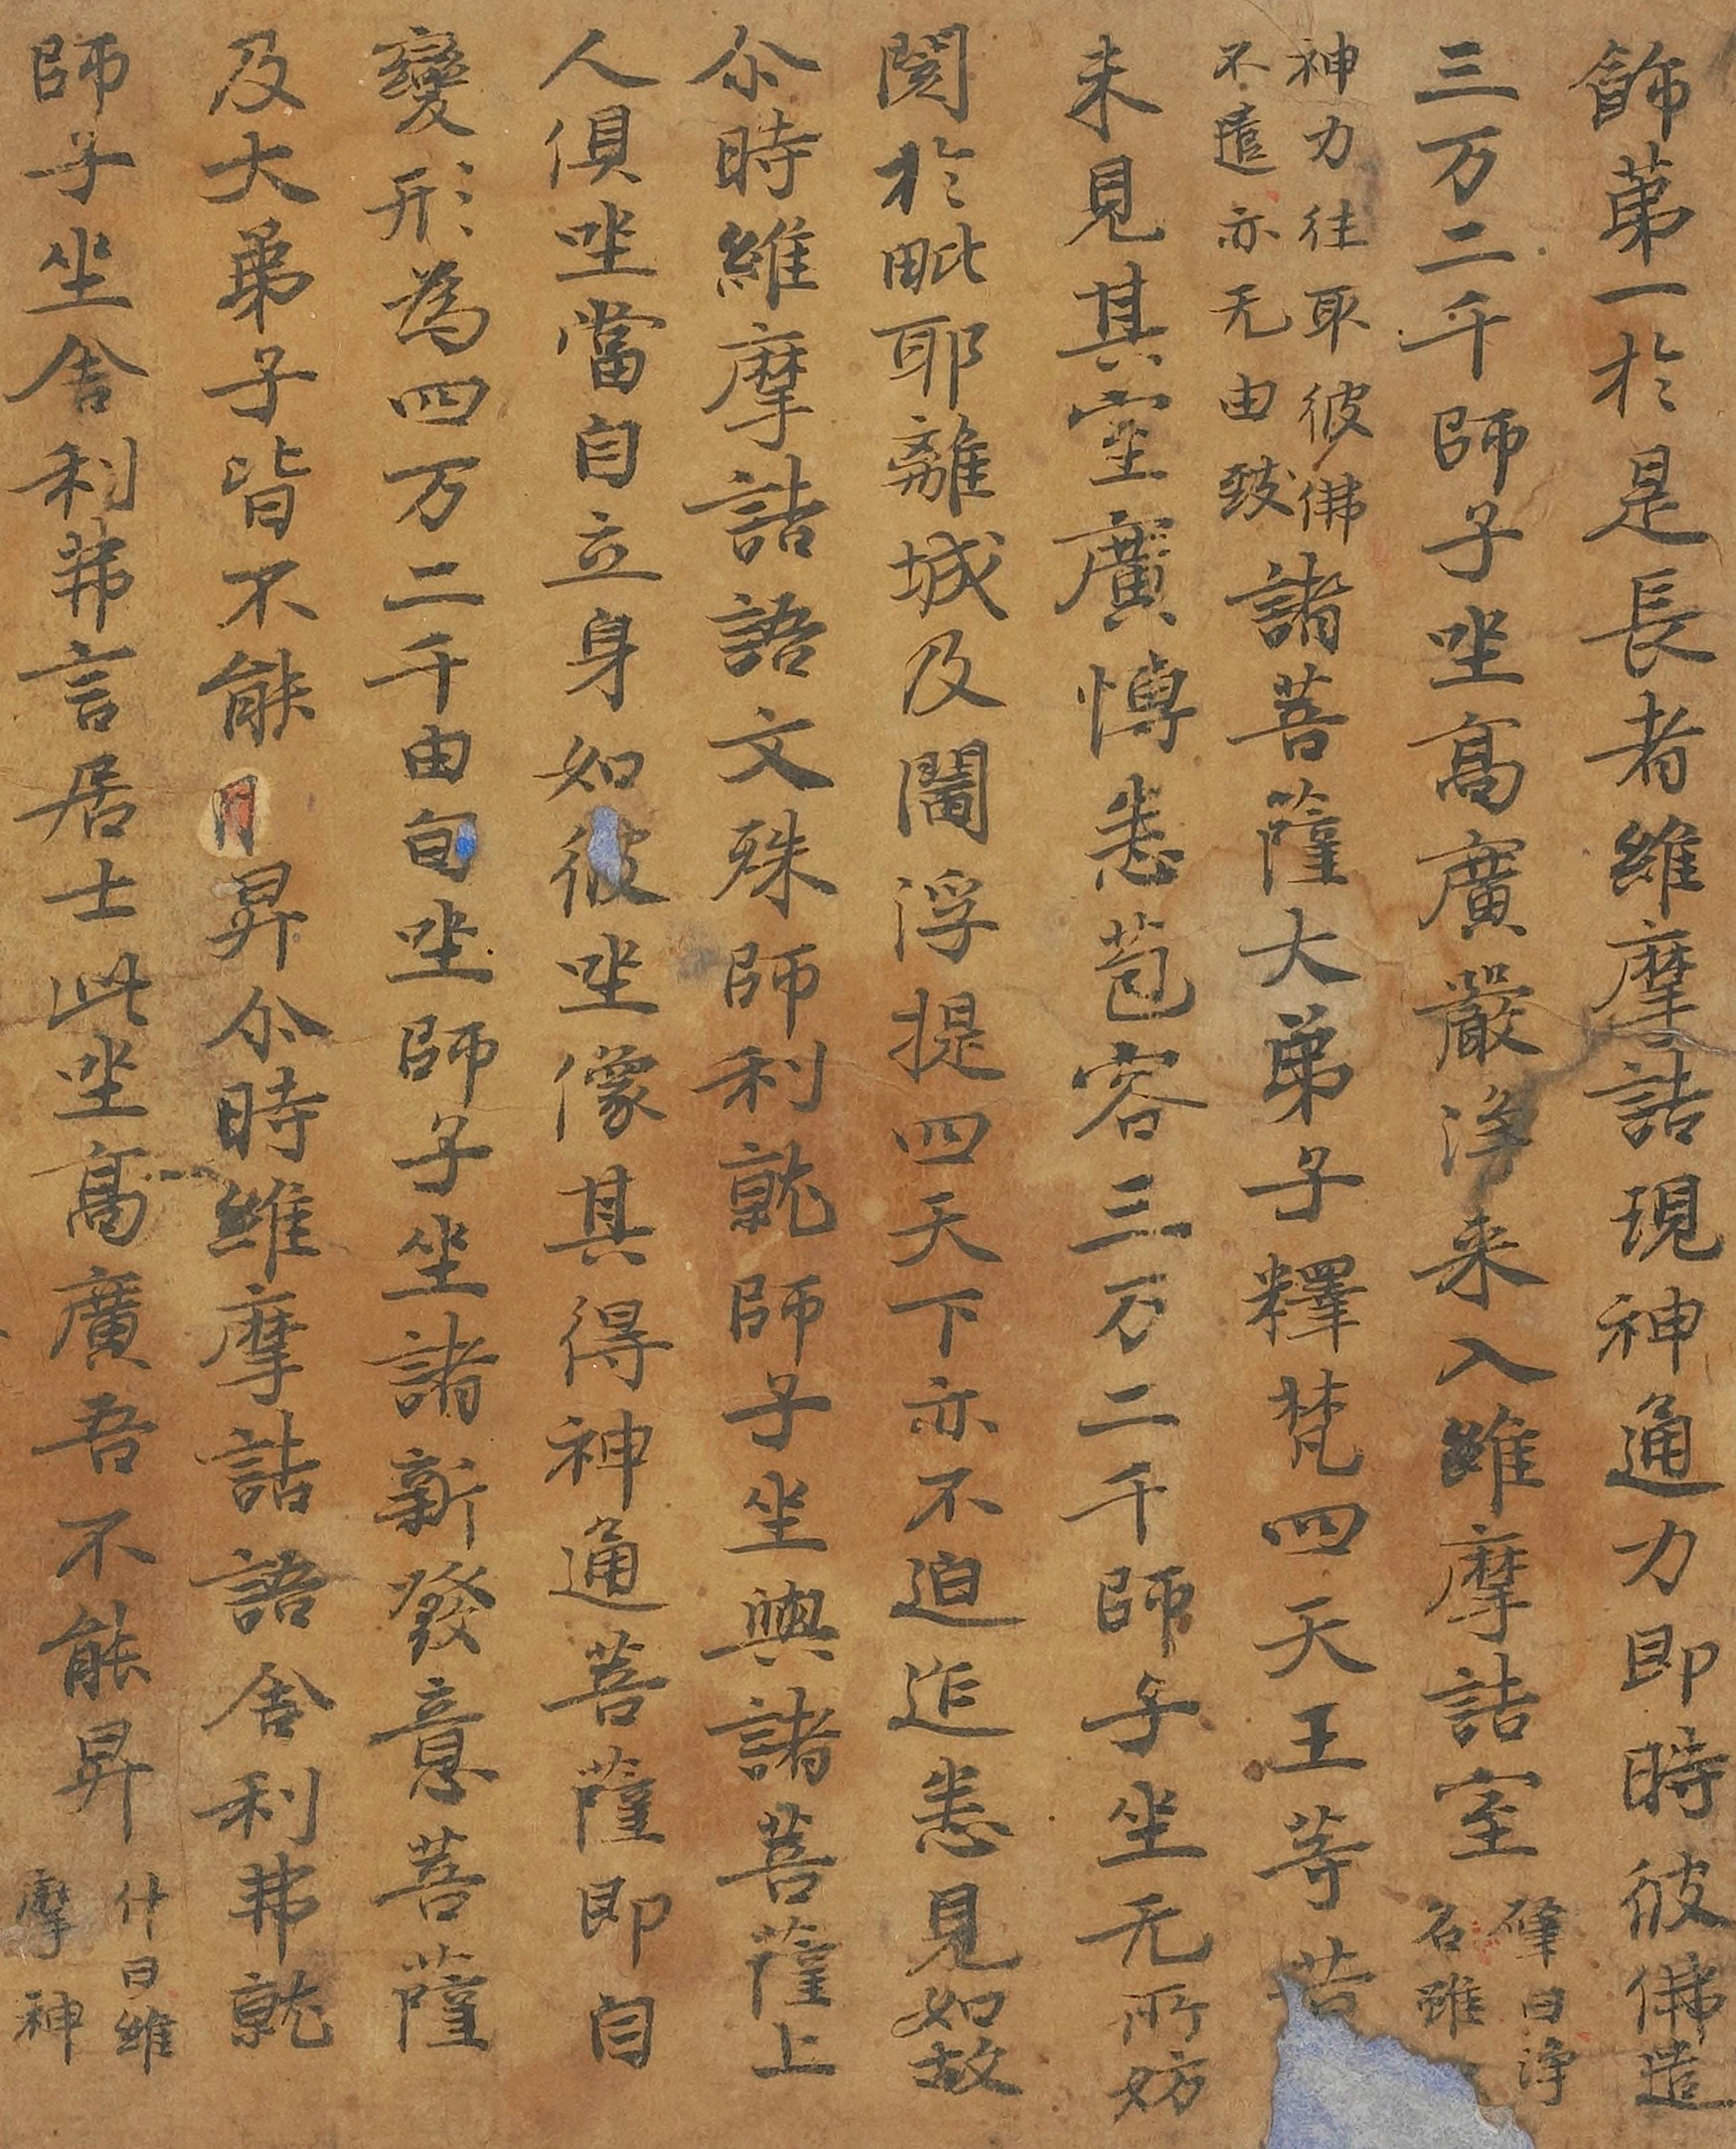 飾苐一於是長者維摩詰現神通力即時彼佛遣
三万二千師子㘴髙廣嚴淨来入維摩詰室肇曰淨名雖
神力往取彼佛不遣亦无由致諸菩薩大弟子釋梵四天王等昔
未見其室廣愽悉苞容三万二千師子坐无所妨
閡於毗耶離城及閻浮提四天下亦不迫迮悉見如故
尒時維摩詰語文殊師利就師子坐與諸菩薩上
人俱㘴當自立身如彼㘴像其得神通菩薩即自
變形為四万二千由旬㘴師子坐諸新發意菩薩
及大弟子皆不能昇尒時維摩詰語舍利弗就
師子坐舍利弗言居士此㘴髙廣吾不能昇什曰維摩神